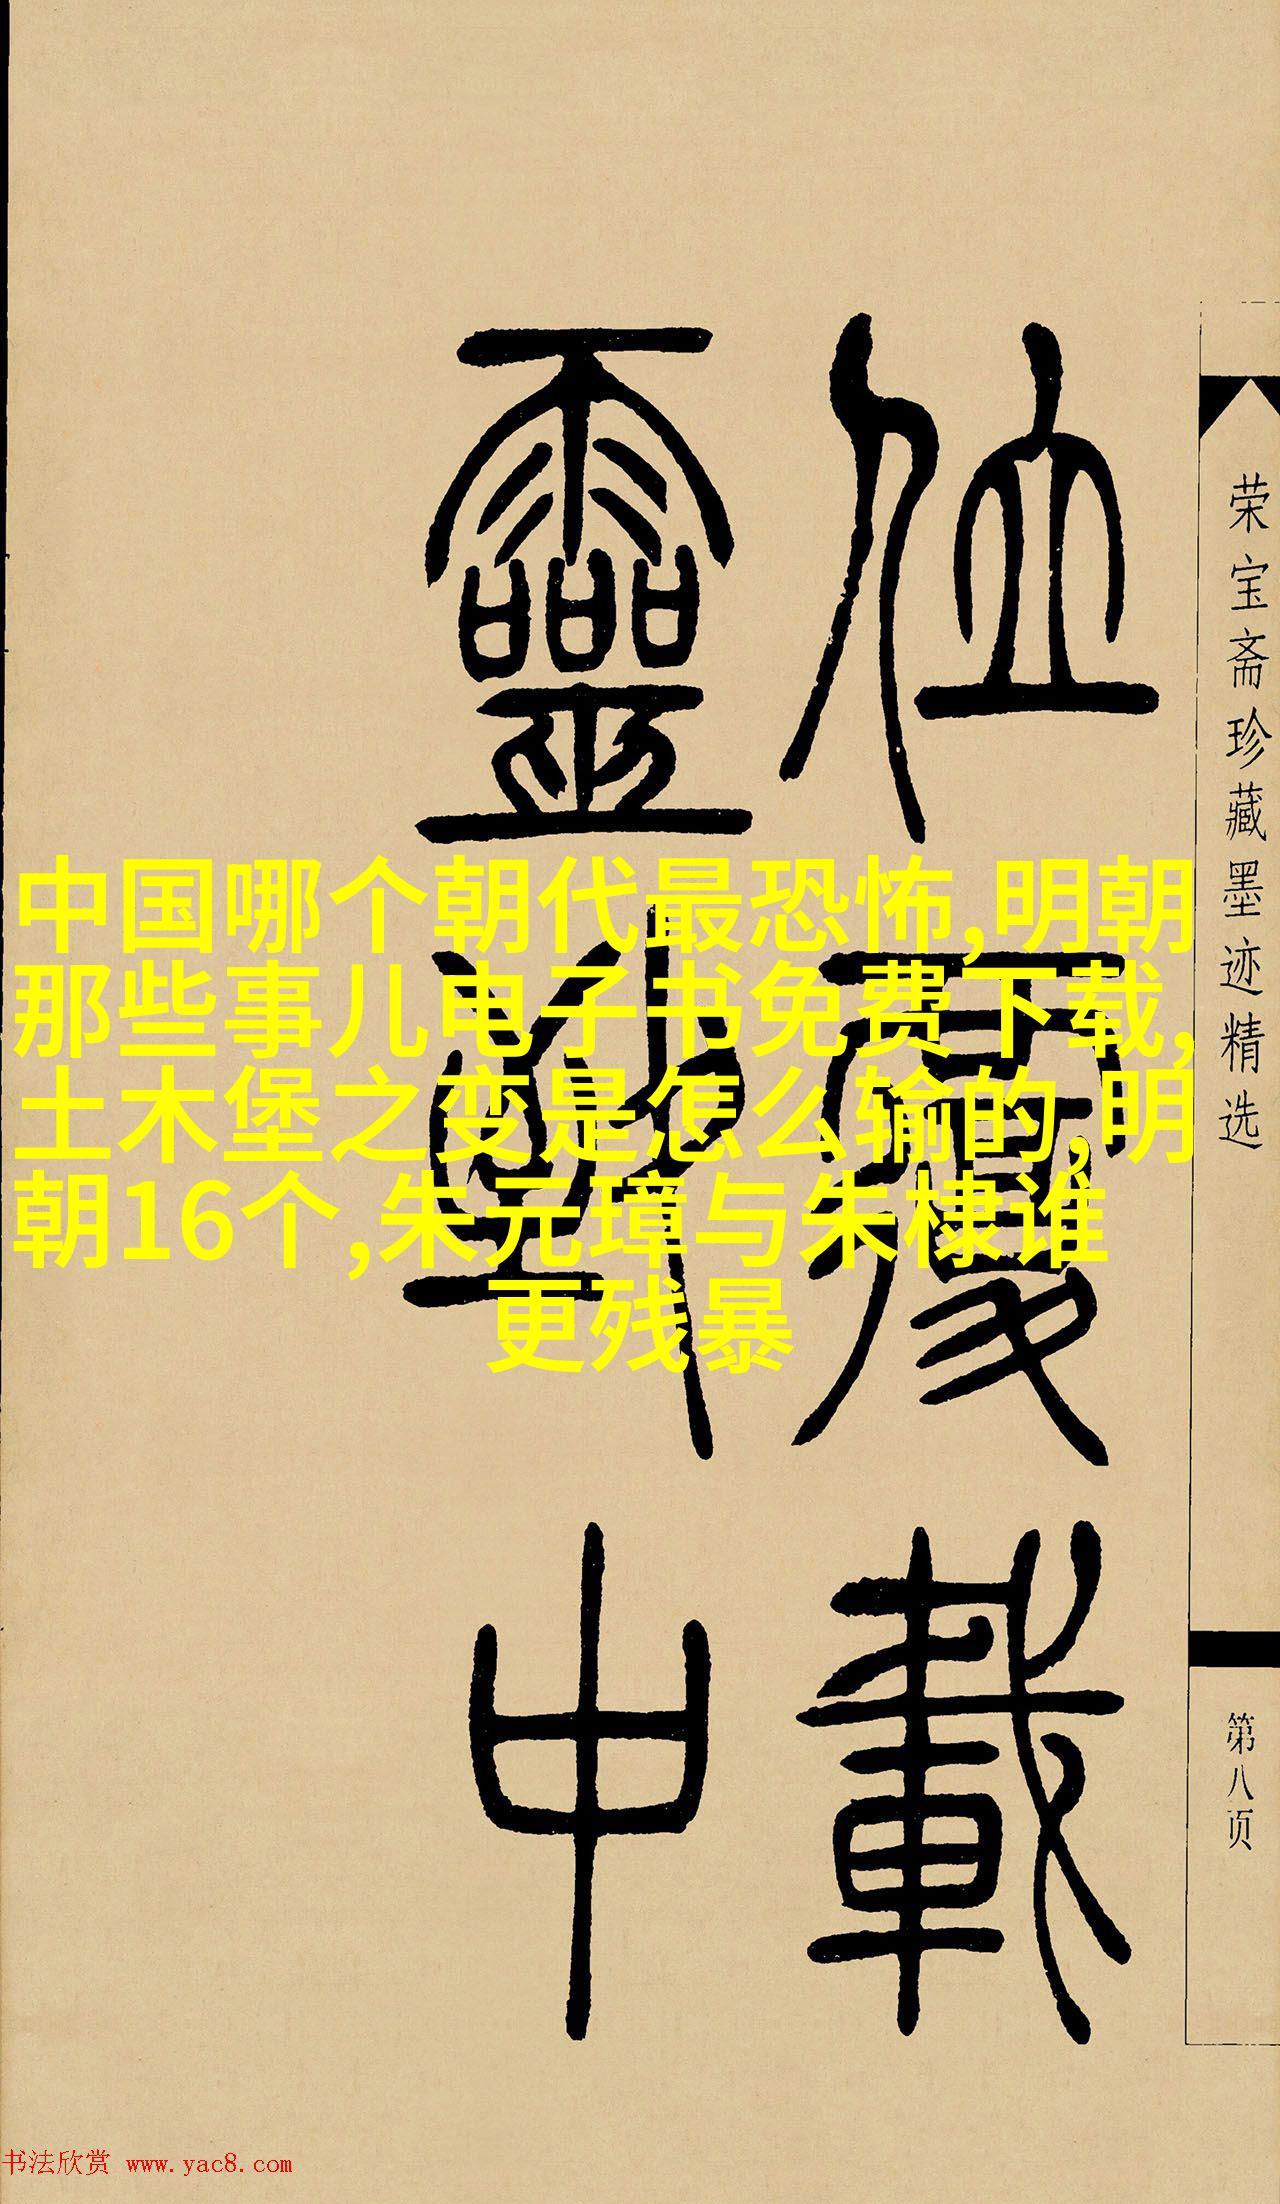 中国哪个朝代最恐怖,明朝
那些事儿电子书免费下载,
土木堡之变是怎么输的,明
朝16个,朱元璋与朱棣谁
更残暴
荣宝斋珍藏墨迹精选
第八页
載
靈
中
书法欣赏 www.yac8.com